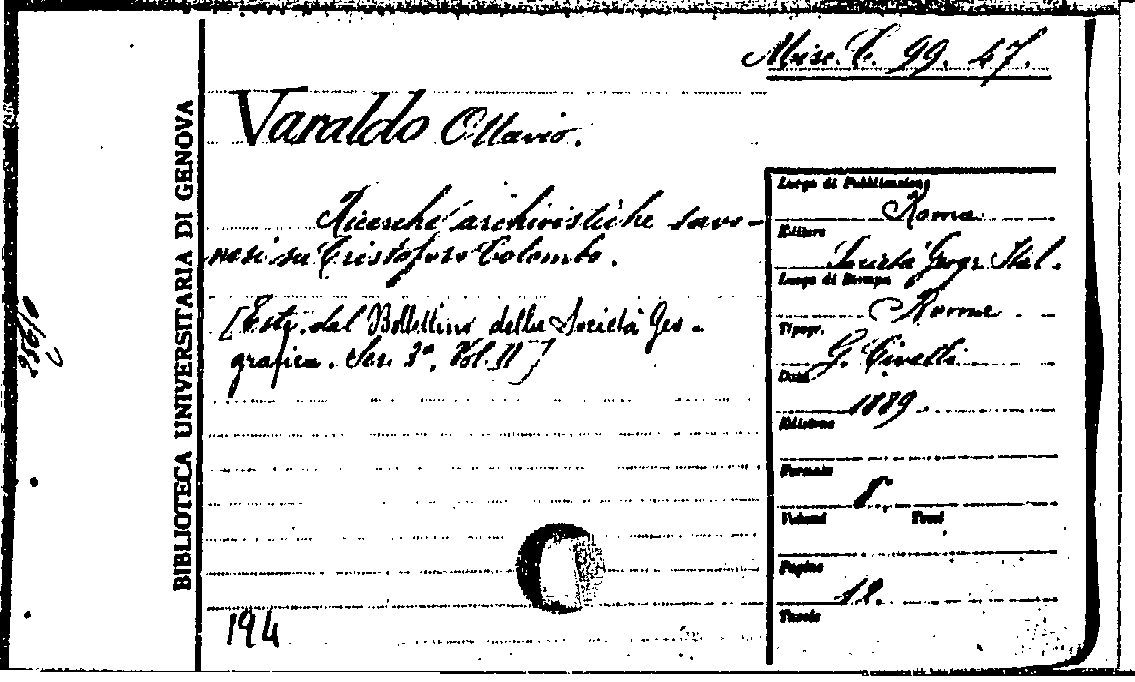 Misc. C. 99. 47.
Varaldo Ottavio.
Ricerche archivistiche savo-
nesi su Cristoforo Colombo.
[Estr. dal Bollettino della Società Geo-
grafica. Ser. 3ª. Vol. II]
194
BIBLIOTECA UNIVERSITARIA DI GENOVA
Luogo di Pubblicazione
Roma
Editore
Società Geogr. Ital.
Luogo di Stampa
Roma
Tipogr.
G. Civelli
Data
1889
Edizione
Formato
8°
Volumi Tomi
Pagine
12.
Tavole